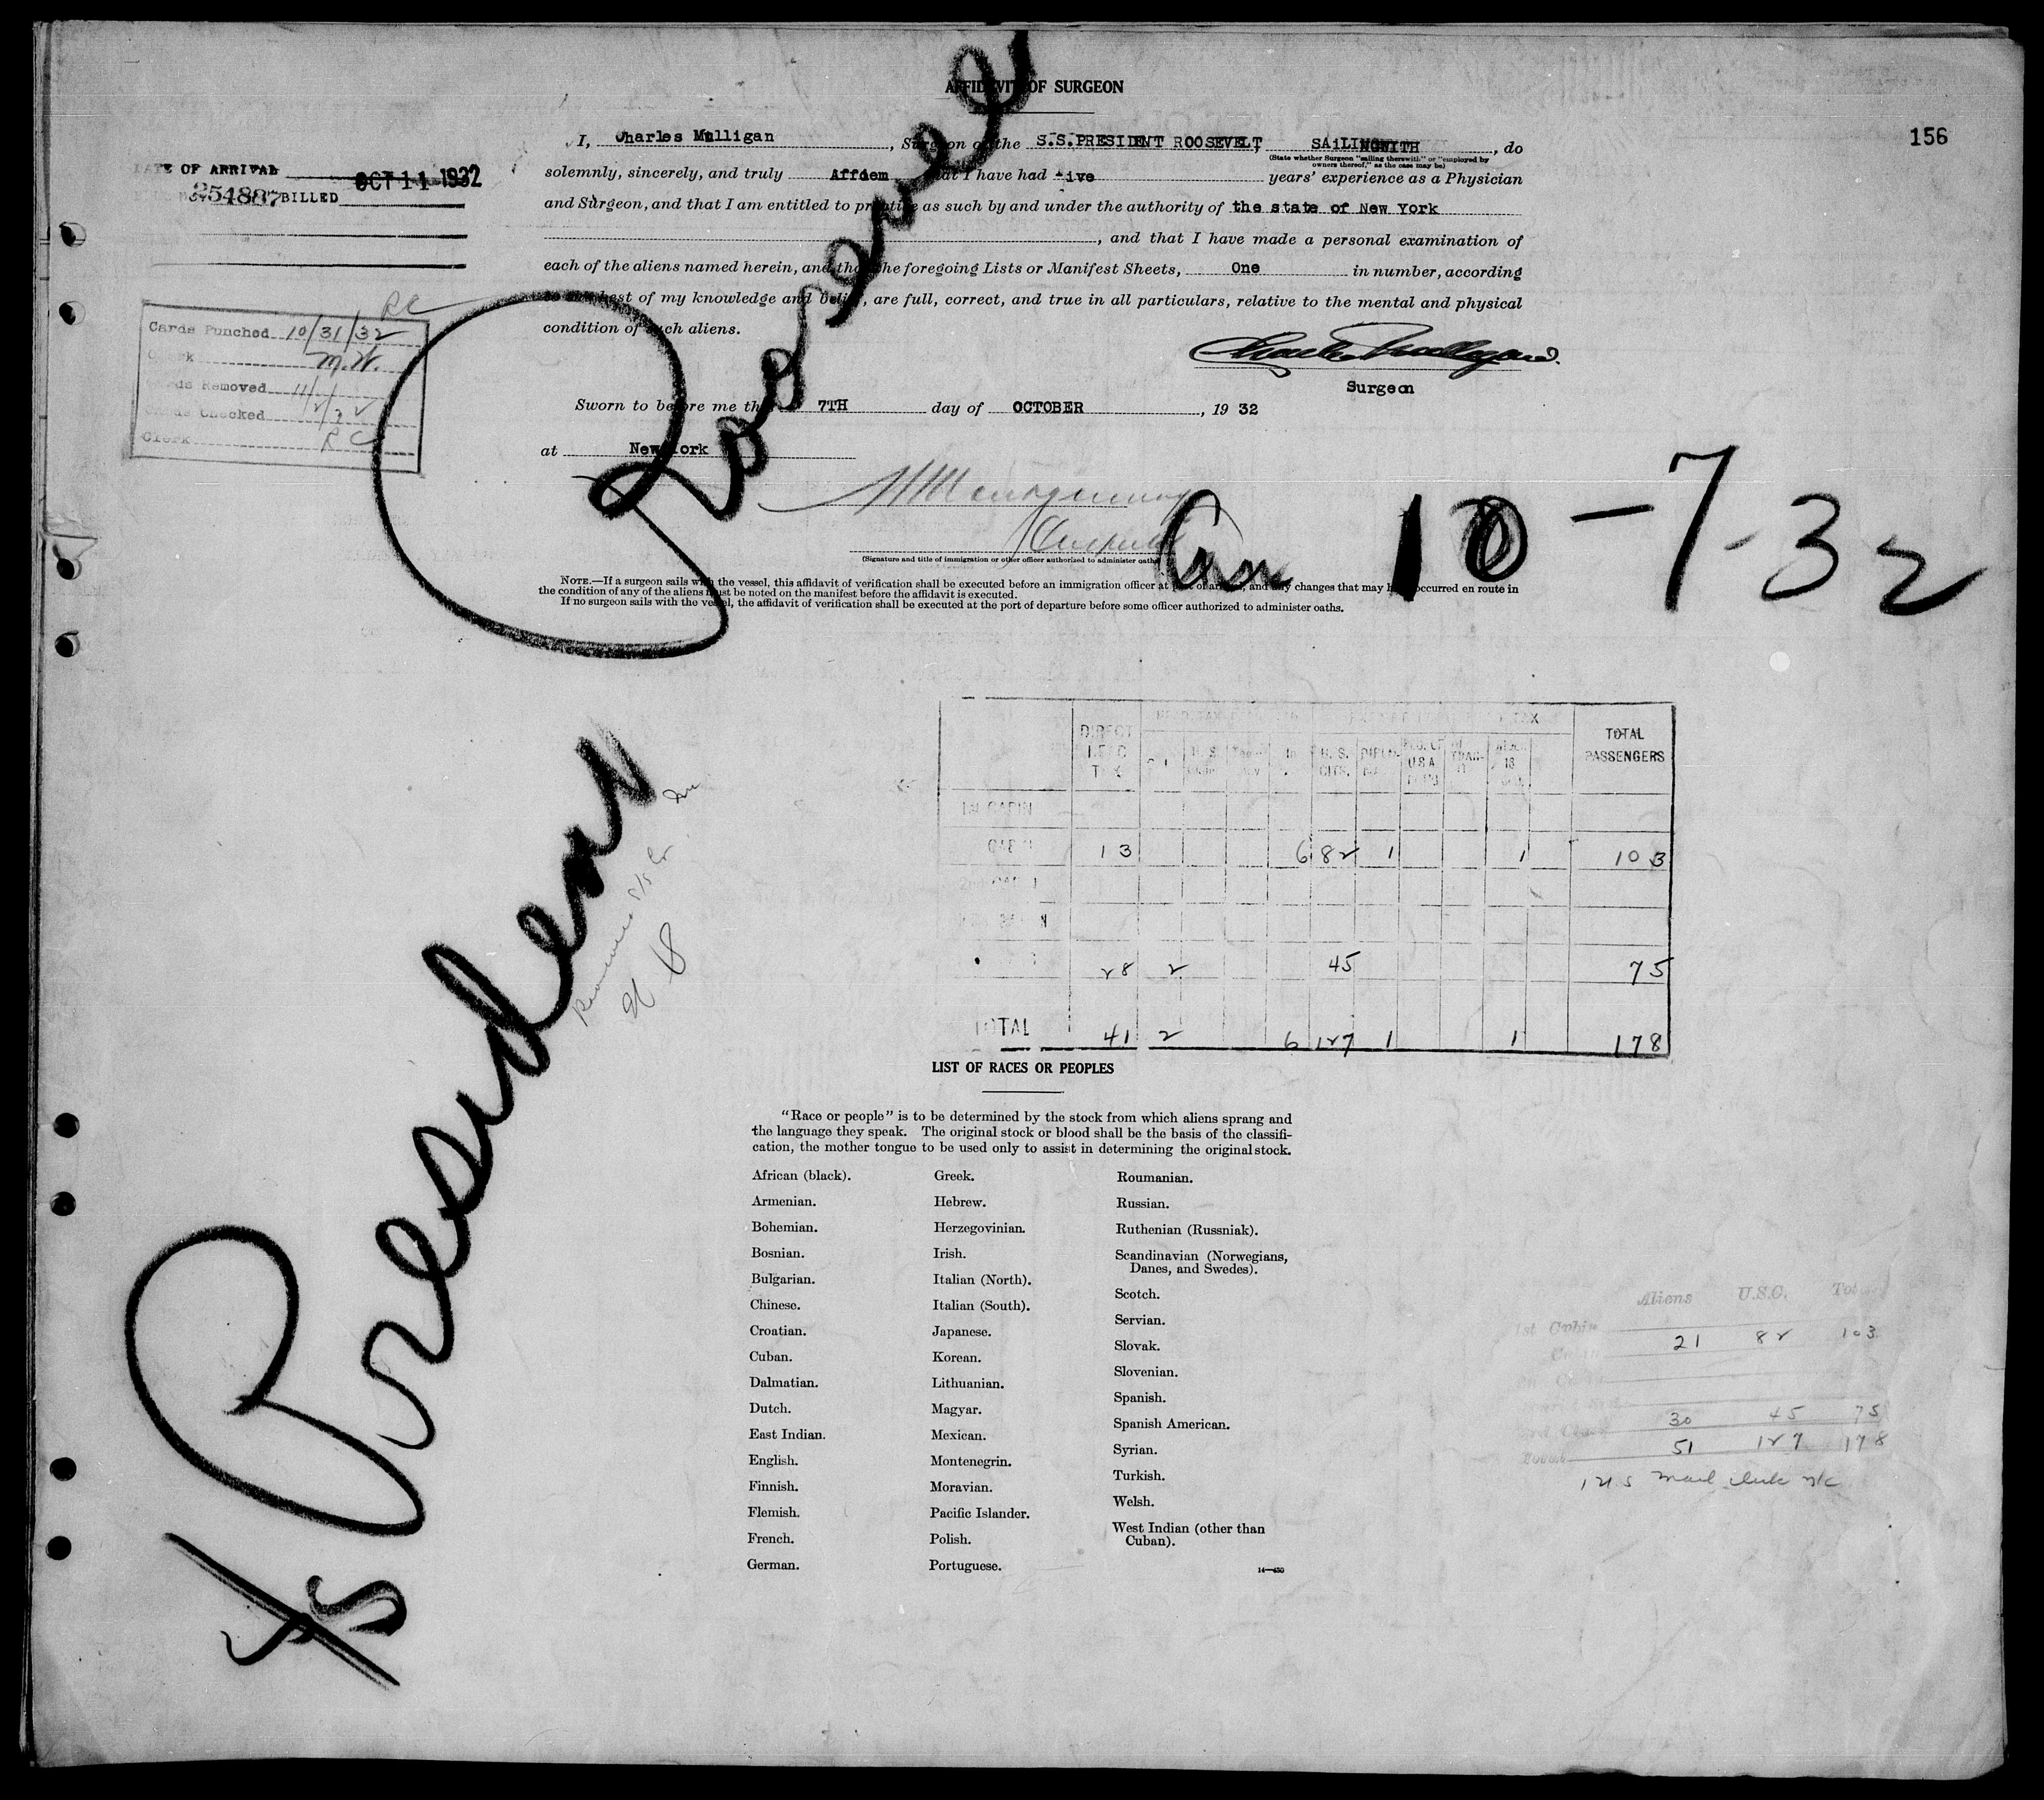 AFFIDAVIT OF SURGEON
156
I, Charles Mulligan, Surgeon of the S.S.PRESIDENT ROOSEVELT SAILING WITH, do
(State whether Surgeon "sailing therewith" or "employed by owners thereof," as the case may be)
solemnly, sincerely, and truly Affdem that I have had five years' experience as a Physician
and Surgeon, and that I am entitled to practice as such by and under the authority of the state of New York
, and that I have made a personal examination of
each of the aliens named herein, and that the foregoing Lists or Manifest Sheets, One in number, according
to the best of my knowledge and belief, are full, correct, and true in all particulars, relative to the mental and physical
condition of such aliens.
Surgeon
Sworn to before me this 7TH day of OCTOBER, 19 32
at New York
(Signature and title of immigration or other officer authorized to administer oaths)
NOTE.—If a surgeon sails with the vessel, this affidavit of verification shall be executed before an immigration officer at port of arrival, and any changes that may have occurred en route in
the condition of any of the aliens must be noted on the manifest before the affidavit is executed.
If no surgeon sails with the vessel, the affidavit of verification shall be executed at the port of departure before some officer authorized to administer oaths.
DATE OF ARRIVAL OCT 11 1932
254887 BILLED
RC
Cards Punched 10/31/32
Clerk M.W.
Cards Removed 11/
Cards Checked 11/2/32
Clerk RC
S/S President Roosevelt
Arr 10-7-32
DIRECT HEAD TAX
U.S. CITS.
TOTAL PASSENGERS
1st CABIN
CABIN 13 6 82 1 1 103
28 2 45 75
TOTAL 41 2 6 127 1 1 178
LIST OF RACES OR PEOPLES
"Race or people" is to be determined by the stock from which aliens sprang and
the language they speak. The original stock or blood shall be the basis of the classifi-
cation, the mother tongue to be used only to assist in determining the original stock.
African (black).
Armenian.
Bohemian.
Bosnian.
Bulgarian.
Chinese.
Croatian.
Cuban.
Dalmatian.
Dutch.
East Indian.
English.
Finnish.
Flemish.
French.
German.
Greek.
Hebrew.
Herzegovinian.
Irish.
Italian (North).
Italian (South).
Japanese.
Korean.
Lithuanian.
Magyar.
Mexican.
Montenegrin.
Moravian.
Pacific Islander.
Polish.
Portuguese.
Roumanian.
Russian.
Ruthenian (Russniak).
Scandinavian (Norwegians,
Danes, and Swedes).
Scotch.
Servian.
Slovak.
Slovenian.
Spanish.
Spanish American.
Syrian.
Turkish.
Welsh.
West Indian (other than
Cuban).
14—430
Aliens U.S.C. Total
1st Cabin
21 82 103
30 45 75
51 127 178
1 U S Mail Clerk